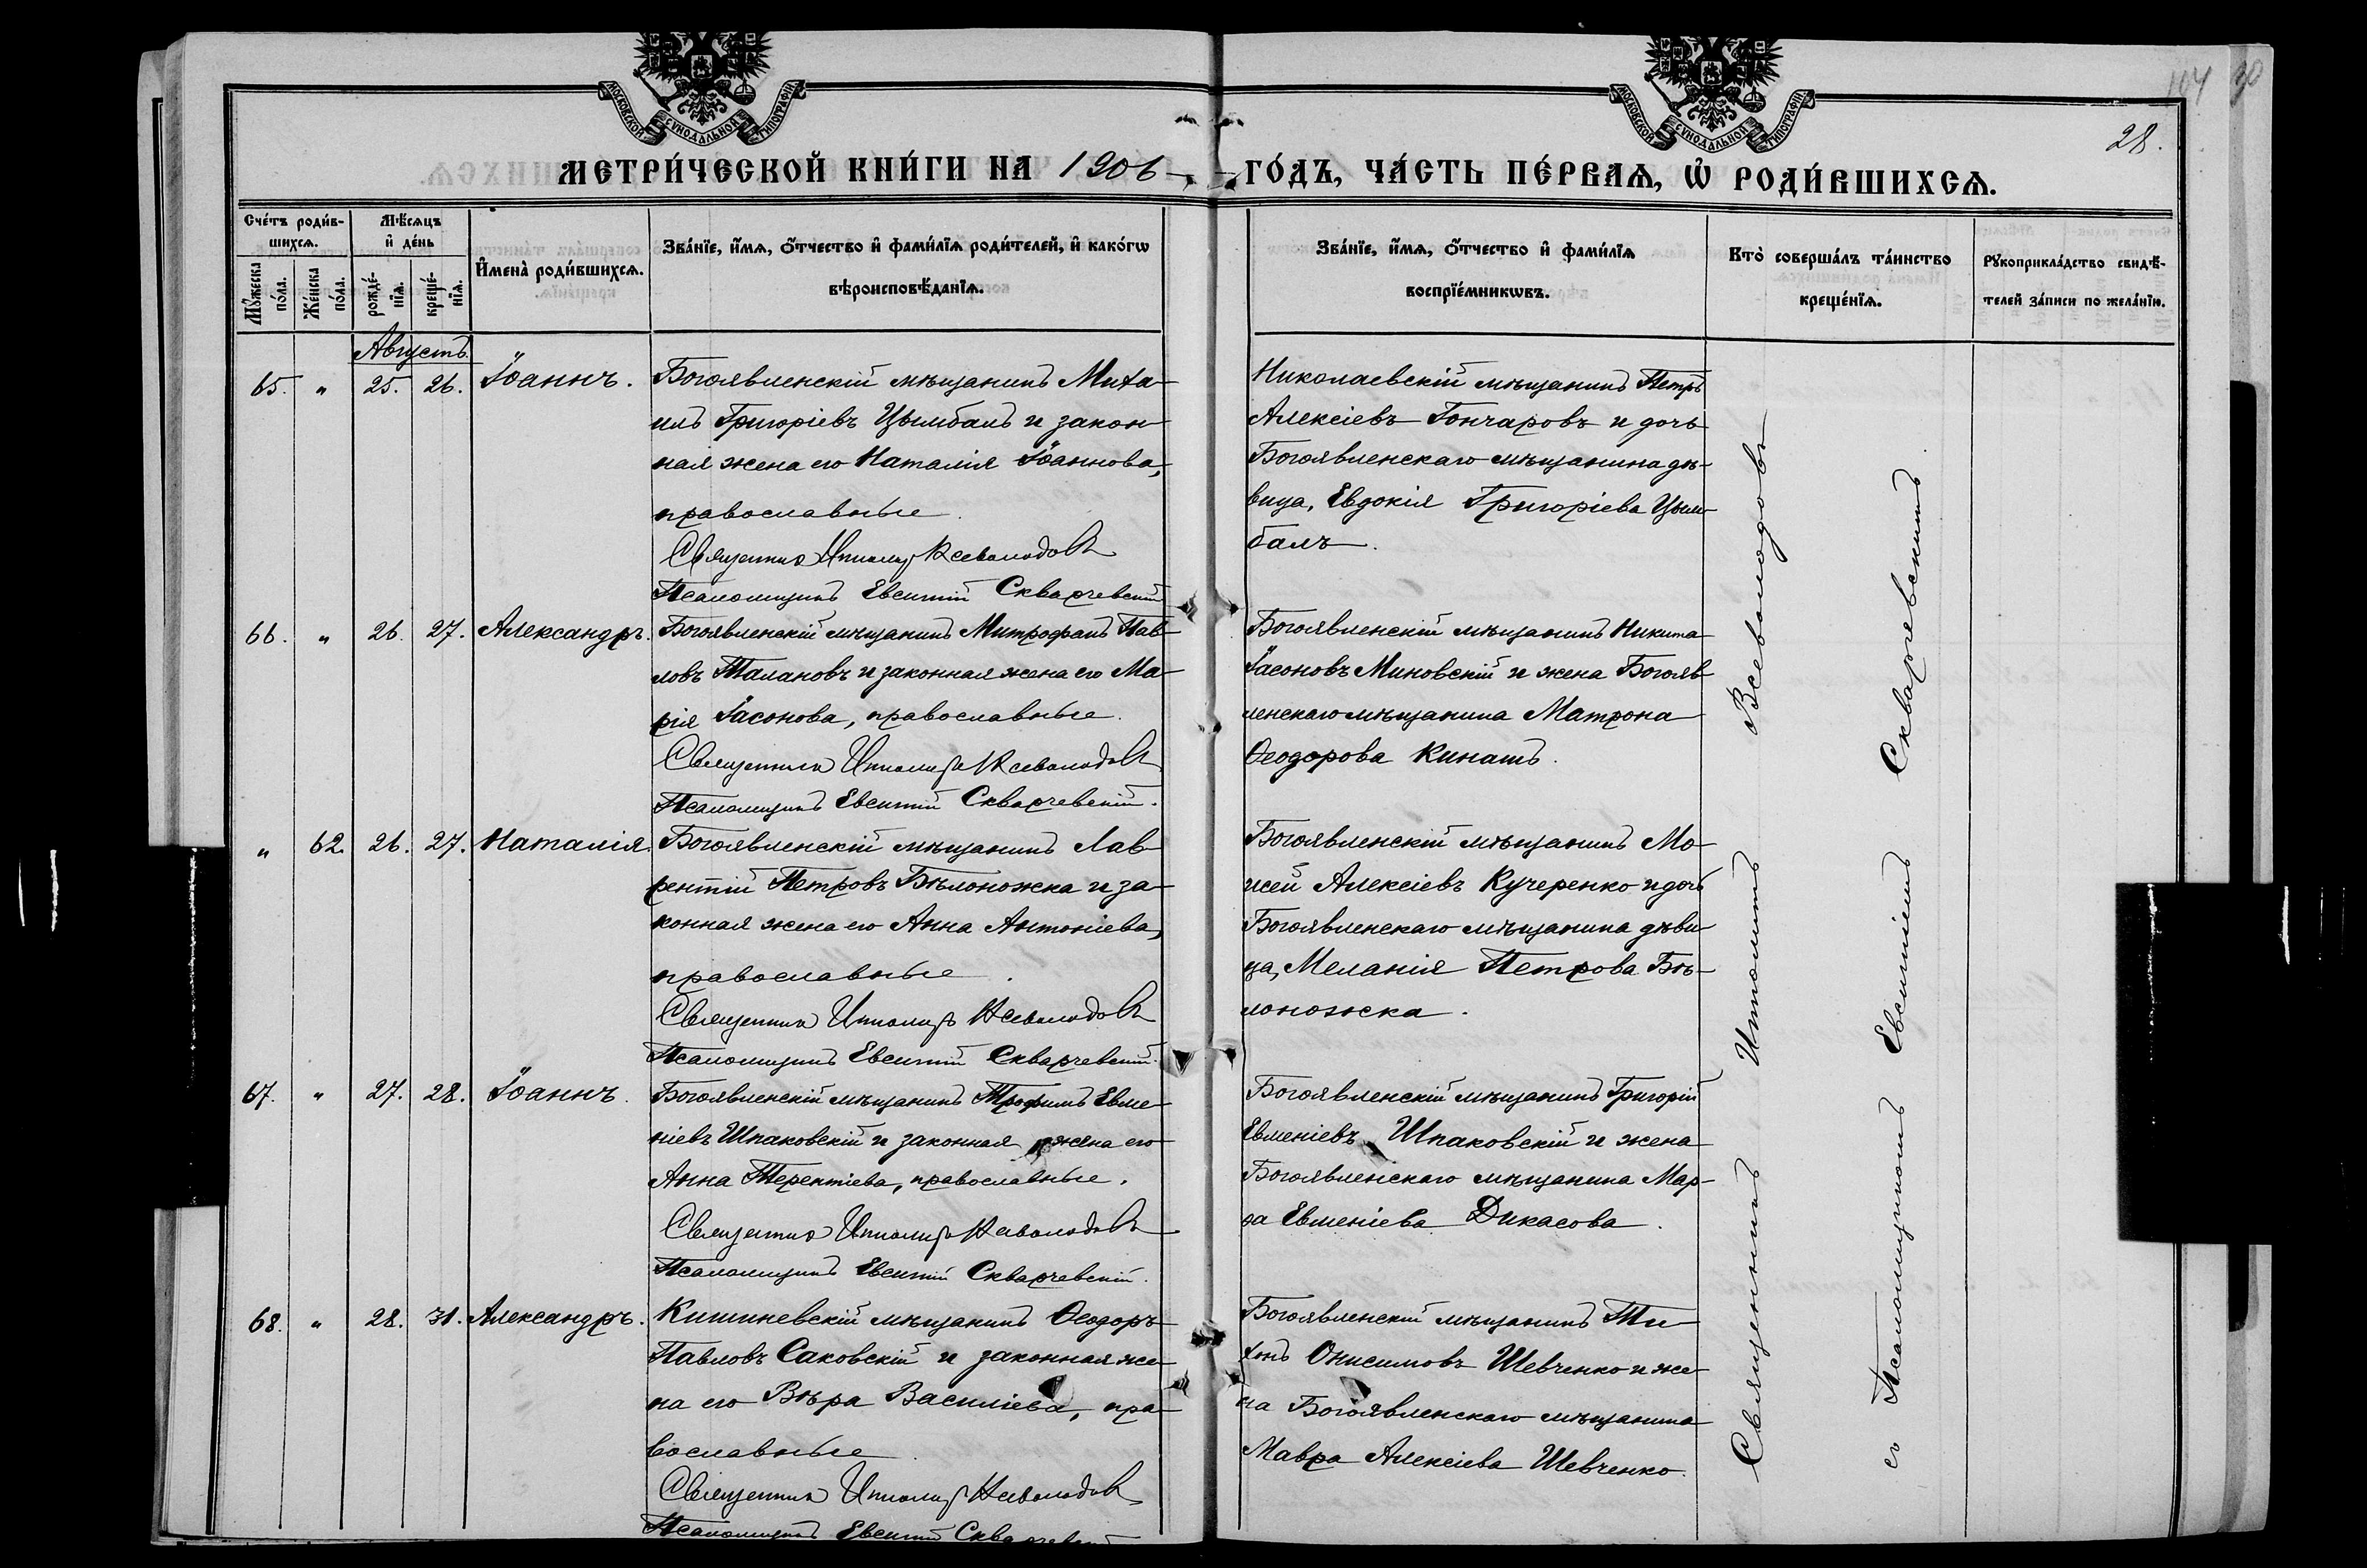 МОСКОВСКОЙ СѴНОДАЛЬНОЙ ТИПОГРАФІИ
МОСКОВСКОЙ СѴНОДАЛЬНОЙ ТИПОГРАФІИ
104 30
28.
МЕТРИ́ЧЕСКОЙ КНИ́ГИ НА 1906 ГО́ДЪ, ЧА́СТЬ ПЕ́РВАѦ, Ѡ҆ РОДИ́ВШИХСѦ.
Сче́тъ роди́в-
шихсѧ.
Мѹжеска по́ла.
Же́нска по́ла.
Мѣ́сѧцъ
и҆ де́нь
рожде́-
нїѧ.
креще́-
нїѧ.
И҆мена̀ роди́вшихсѧ.
Зва́нїе, и҆́мѧ, ѻ҆́тчество и҆ фами́лїѧ роди́телей, и҆ како́гѡ
вѣроисповѣ́данїѧ.
Зва́нїе, и҆́мѧ, ѻ҆́тчество и҆ фами́лїѧ
воспрїе́мникѡвъ.
Кто̀ соверша́лъ та́инство
креще́нїѧ.
Рѹкоприкла́дство свидѣ́-
телей за́писи по жела́нїю.
Августъ
65. " 25. 26. Іоаннъ.
Богоявленскій мѣщанинъ Миха-
илъ Григоріевъ Цымбалъ и закон-
ная жена его Наталія Іоаннова,
православные.
Священникъ Ипполитъ Всеволодовъ
Псаломщикъ Евсигній Скваржевскій
Николаевскій мѣщанинъ Петръ
Алексіевъ Гончаровъ и дочь
Богоявленскаго мѣщанина дѣ-
вица, Евдокія Григоріева Цым-
балъ.
66. " 26. 27. Александръ.
Богоявленскій мѣщанинъ Митрофанъ Пав-
ловъ Талановъ и законная жена его Ма-
рія Іасонова, православные.
Священникъ Ипполитъ Всеволодовъ
Псаломщикъ Евсигній Скваржевскій.
Богоявленскій мѣщанинъ Никита
Іасоновъ Миновскій и жена Богояв-
ленскаго мѣщанина Матрона
Ѳеодорова Кинашъ.
" 62. 26. 27. Наталія.
Богоявленскій мѣщанинъ Лав-
рентій Петровъ Бѣлоножка и за-
конная жена его Анна Антоніева,
православные.
Священникъ Ипполитъ Всеволодовъ
Псаломщикъ Евсигній Скваржевскій.
Богоявленскій мѣщанинъ Мо-
исей Алексіевъ Кучеренко и дочь
Богоявленскаго мѣщанина дѣви-
ца, Меланія Петрова Бѣ-
лоножка.
67. " 27. 28. Іоаннъ.
Богоявленскій мѣщанинъ Трофимъ Евме-
ніевъ Шпаковскій и законная жена его
Анна Терентіева, православные.
Священникъ Ипполитъ Всеволодовъ
Псаломщикъ Евсигній Скваржевскій.
Богоявленскій мѣщанинъ Григорій
Евменіевъ Шпаковскій и жена
Богоявленскаго мѣщанина Мар-
ѳа Евменіева Дикасова.
68. " 28. 31. Александръ.
Кишиневскій мѣщанинъ Ѳеодоръ
Павловъ Саковскій и законная же-
на его Вѣра Василіева, пра-
вославные.
Священникъ Ипполитъ Всеволодовъ
Псаломщикъ Евсигній Скваржевскій
Богоявленскій мѣщанинъ Ти-
хонъ Онисимовъ Шевченко и же-
на Богоявленскаго мѣщанина
Мавра Алексіева Шевченко.
Священникъ Ипполитъ Всеволодовъ
съ Псаломщикомъ Евсигніемъ Скваржевскимъ.